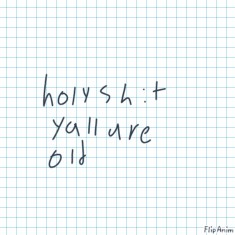 holy sh:t
yall are
old
FlipAnim